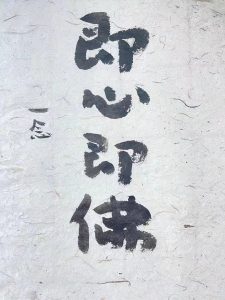 即心即佛
一念